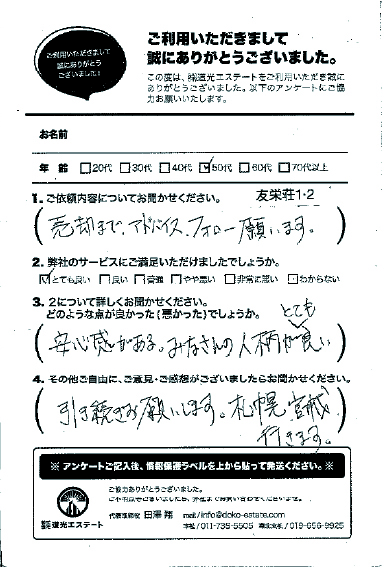 ご利用いただきまして
誠にありがとう
ございました!
ご利用いただきまして
誠にありがとうございました。
この度は、㈱道光エステートをご利用いただき誠に
ありがとうございました。以下のアンケートにご協
力お願いいたします。
お名前
年 齢 □20代 □30代 □40代 ☑50代 □60代 □70代以上
1. ご依頼内容についてお聞かせください。 友栄荘1・2
売却まで、アドバイス、フォロー願います。
2. 弊社のサービスにご満足いただけましたでしょうか。
☑とても良い □良い □普通 □やや悪い □非常に悪い □わからない
3. 2について詳しくお聞かせください。
どのような点が良かった(悪かった)でしょうか。
とても
安心感がある。みなさんの人柄が良い
4. その他ご自由に、ご意見・ご感想がございましたらお聞かせください。
引き続きお願いします。札幌、宮城
行きます。
※ アンケートご記入後、情報保護ラベルを上から貼って発送ください。※
ご協力ありがとうございました。
株式会社 道光エステート
代表取締役 田澤 翔 mail/info@doko-estate.com